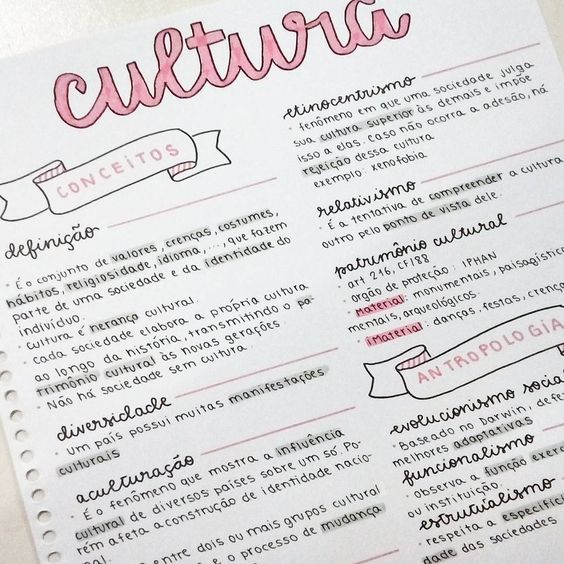 cultura
CONCEITOS
definição
· É o conjunto de valores, crenças, costumes,
hábitos, religiosidade, idioma, ..., que fazem
parte de uma sociedade e da identidade do
indivíduo.
· Cultura é herança cultural.
· Cada sociedade elabora a própria cultura
ao longo da história, transmitindo o pa-
trimônio cultural às novas gerações
· Não há sociedade sem cultura.
diversidade
· um país possui muitas manifestações
culturais
aculturação
· É o fenômeno que mostra a influência
cultural de diversos países sobre um só. Po-
rém afeta a construção de identidade nacio-
nal.
entre dois ou mais grupos cultural
e o processo de mudança
etinocentrismo
· fenômeno em que uma sociedade julga
sua cultura superior às demais e impõe
isso a elas. Caso não ocorra a adesão, há
rejeição dessa cultura
exemplo: xenofobia
relativismo
· É a tentativa de compreender a cultura
outro pelo ponto de vista dele.
patrimônio cultural
art 216, CF/88
· orgão de profeção: IPHAN
· Material: monumentais, paisagístic
mentais, arqueológicos.
· iMaterial: danças, festas, crença
ANTROPOLOGIA
evolucionismo social
· Baseado no Darwin, defe
melhores adaptativas
funcionalismo
· observa a função exer
ou instituição.
estrutualismo
· respeita a especifici
dade das sociedades